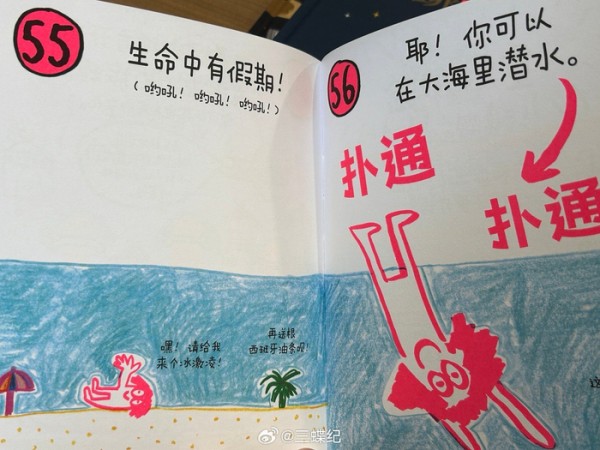 55
生命中有假期!
(哟吼! 哟吼! 哟吼!)
嘿! 请给我
来个冰激凌!
再送根
西班牙油条吧!
56
耶! 你可以
在大海里潜水。
扑通
扑通
这
@三蝶纪